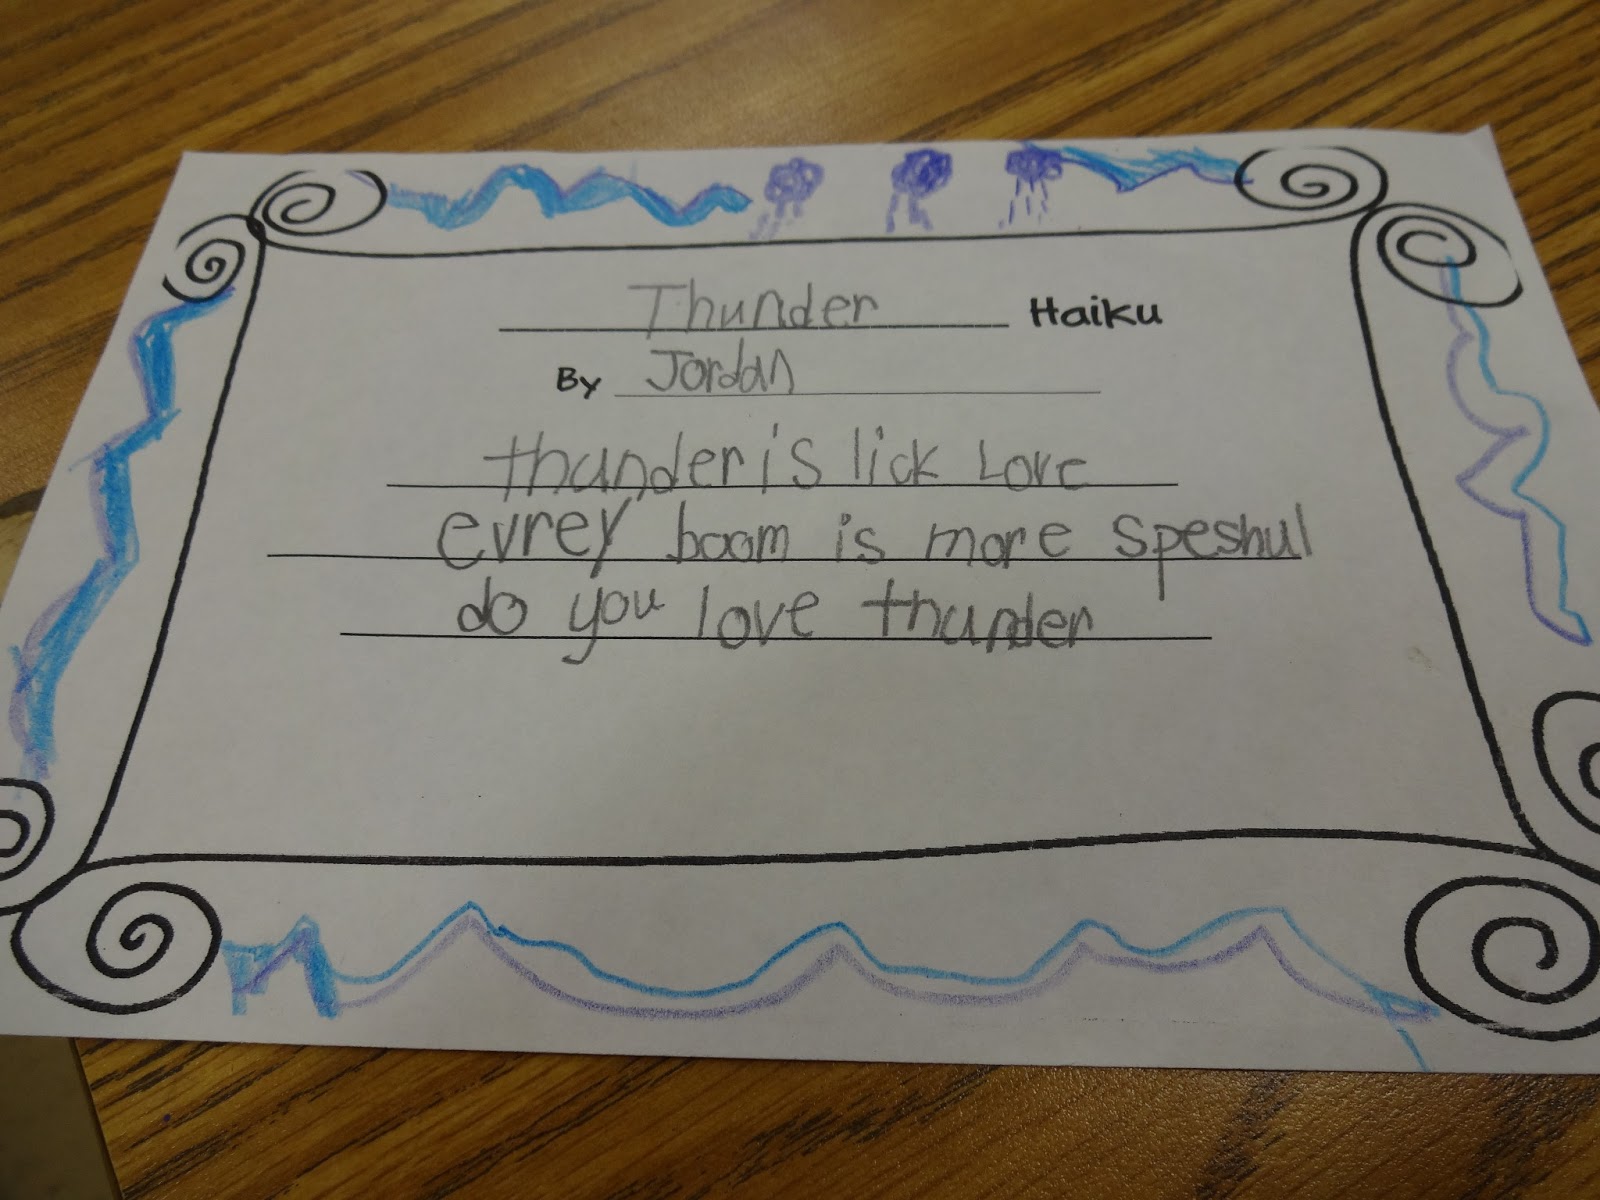 Thunder Haiku
By Jordan
thunder is lick Love
evrey boom is more speshul
do you love thunder